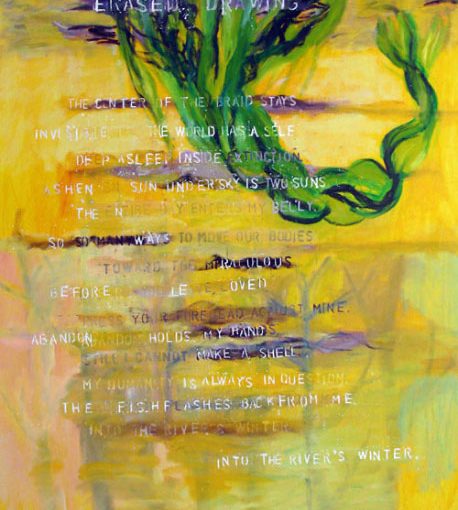 ERASED DRAWING
THE CENTER OF THE BRAID STAYS
THE WORLD HAS A SELF
DEEP ASLEEP INSIDE EXTINCTION.
ASHEN SUN UNDER SKY IS TWO SUNS
THE ENTERS MY BELLY.
SO SO MANY WAYS TO MOVE OUR BODIES
TOWARD THE MIRACULOUS
BEFORE LOVED
YOUR AGAINST MINE.
ABANDON HOLDS MY HANDS.
STILL I CANNOT MAKE A SHELL.
MY HUMANITY IS ALWAYS IN QUESTION.
THE FISH FLASHES BACK FROM ME.
INTO THE RIVER'S WINTER
INTO THE RIVER'S WINTER.